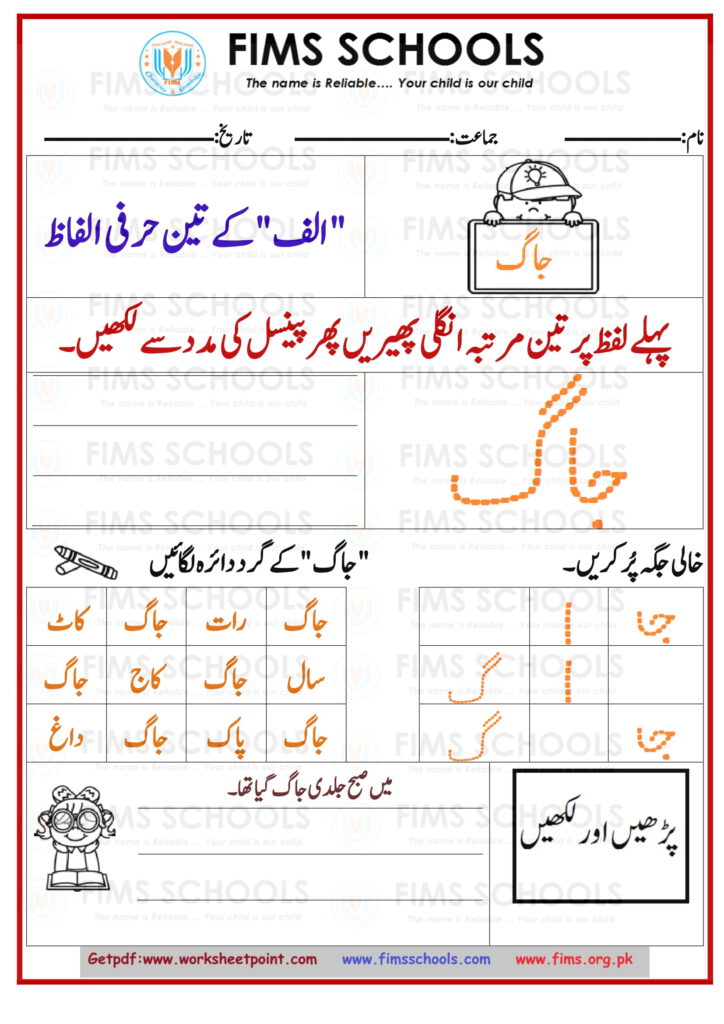 FIMS SCHOOLS
The name is Reliable.... Your child is our child
نام: جماعت: تاریخ:
جاگ
"الف" کے تین حرفی الفاظ
پہلے لفظ پر تین مرتبہ انگلی پھیریں پھر پینسل کی مدد سے لکھیں۔
جاگ
خالی جگہ پُر کریں۔
جـ ا
ا گ
جـ گ
"جاگ" کے گرد دائرہ لگائیں
جاگ رات جاگ کاٹ
سال جاگ کاج جاگ
جاگ پاک جاگ داغ
پڑھیں اور لکھیں
میں صبح جلدی جاگ گیا تھا۔
Getpdf:www.worksheetpoint.com www.fimsschools.com www.fims.org.pk